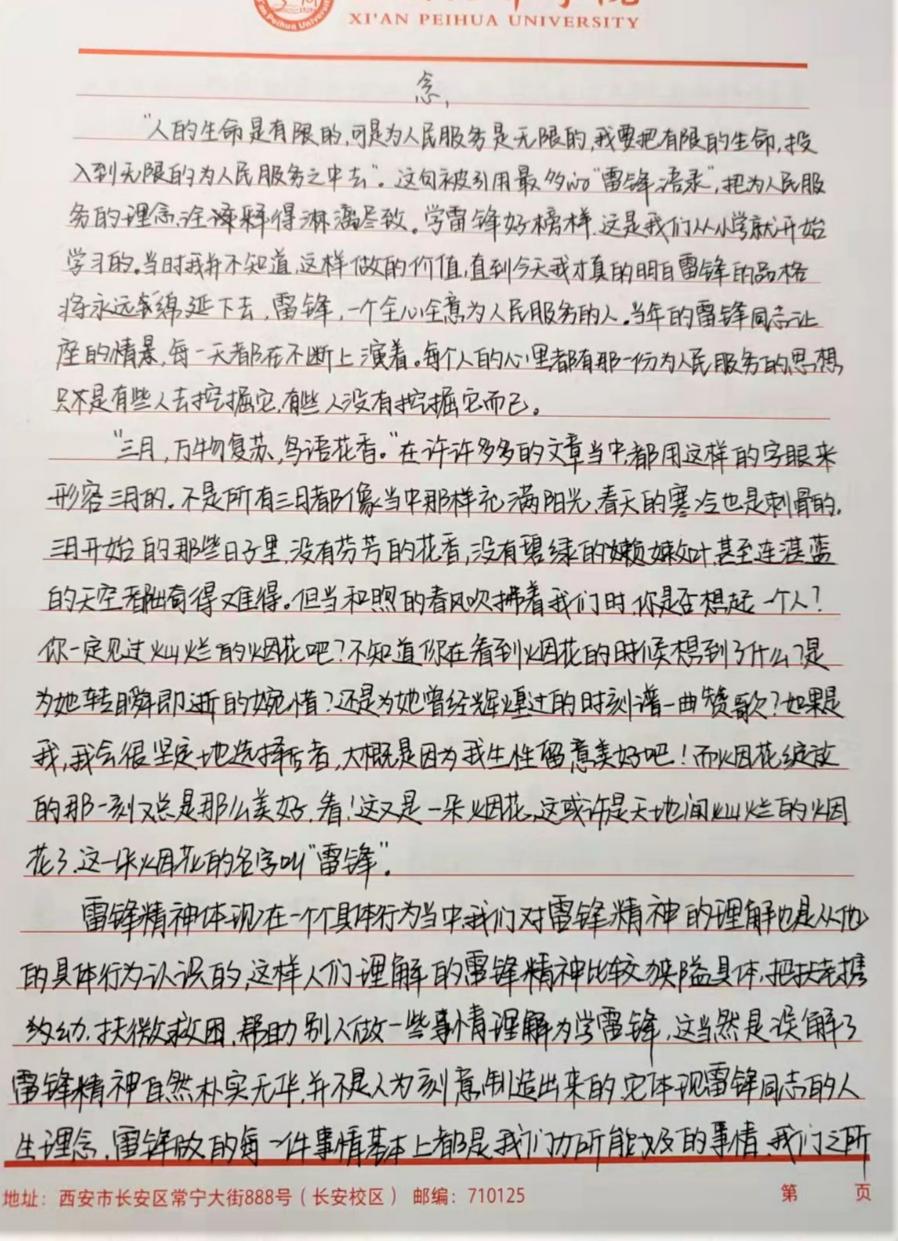 XI'AN PEIHUA UNIVERSITY
念,
“人的生命是有限的,可是为人民服务是无限的,我要把有限的生命,投
入到无限的为人民服务之中去”。这句被引用最多的“雷锋语录”,把为人民服
务的理念诠释得淋漓尽致。学雷锋好榜样.这是我们从小学就开始
学习的。当时我并不知道,这样做的价值,直到今天我才真的明白雷锋的品格
将永远绵延下去,雷锋,一个全心全意为人民服务的人。当年的雷锋同志让
座的情景,每一天都在不断上演着。每个人的心里都有那一份为人民服务的思想,
只不是有些人去挖掘它,有些人没有挖掘它而已。
“三月,万物复苏,鸟语花香。”在许许多多的文章当中,都用这样的字眼来
形容三月的。不是所有三月都像当中那样充满阳光,春天的寒冷也是刺骨的,
三月开始的那些日子里,没有芬芳的花香,没有碧绿的嫩叶,甚至连湛蓝
的天空都出奇得难得。但当和煦的春风吹拂着我们时,你是否想起一个人?
你一定见过灿烂的烟花吧?不知道你在看到烟花的时候想到了什么?是
为她转瞬即逝的惋惜?还是为她曾经辉煌过的时刻谱一曲赞歌?如果是
我,我会很坚定地选择后者,大概是因为我生性留意美好吧!而烟花绽放
的那一刻又总是那么美好.看!这又是一朵烟花,这或许是天地间灿烂的烟
花了.这一朵烟花的名字叫“雷锋”.
雷锋精神体现在一个个具体行为当中,我们对雷锋精神的理解也是从他
的具体行为认识的,这样人们理解的雷锋精神比较狭隘具体,把扶老携
幼,扶微救困,帮助别人做一些事情理解为学雷锋,这当然是误解了
雷锋精神自然朴实无华,并不是人为刻意制造出来的,它体现雷锋同志的人
生理念.雷锋做的每一件事情基本上都是我们力所能及的事情,我们之所
地址：西安市长安区常宁大街888号（长安校区） 邮编：710125 第 页